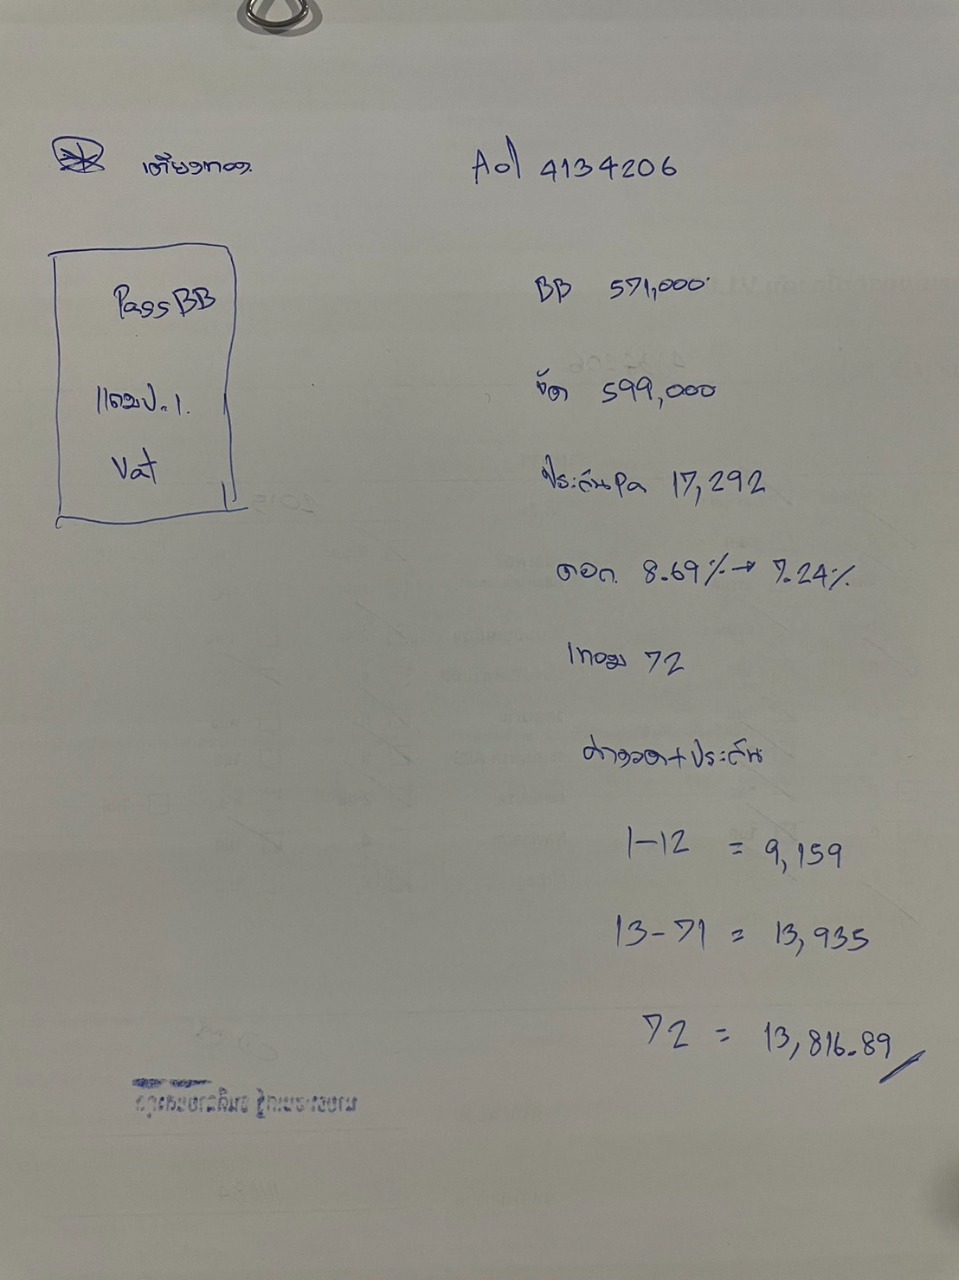 เตียงทอง
Aol 4134206
Pass BB
แถมป.1.
Vat
BB 571,000
จัด 599,000
ประกันPa 17,292
ดอก 8.69% → 7.24%
เทอม 72
ค่างวด+ประกัน
1-12 = 9,159
13-71 = 13,935
72 = 13,816.89